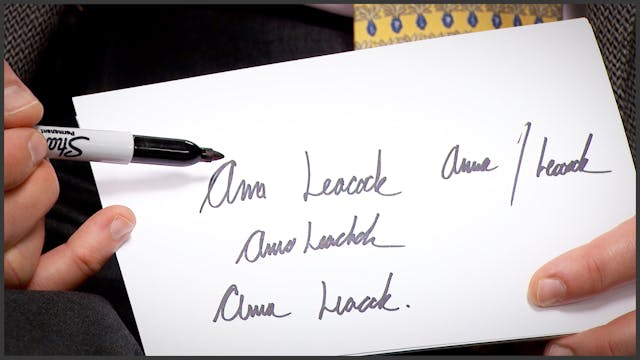 Anna Leacock
Anna / Leacock
Anna Leacock
Anna Leacock.
Sha
Permanent